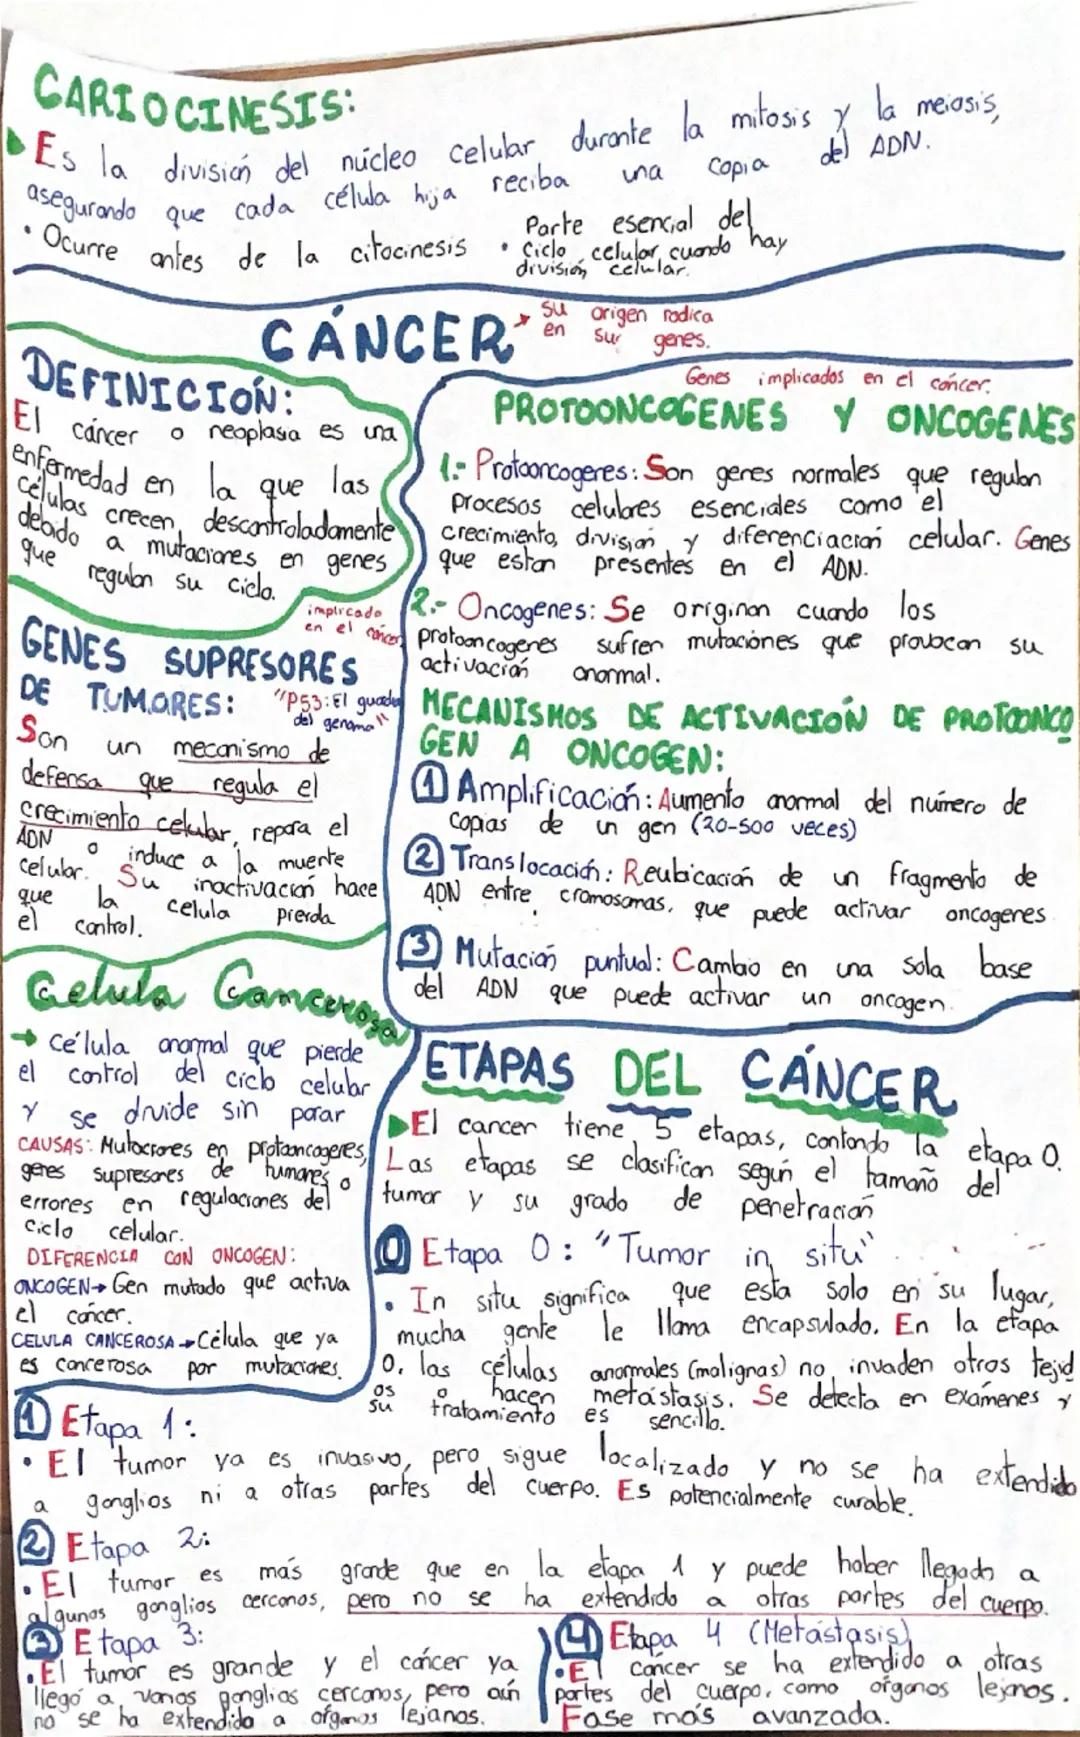 CARIOCINESIS:
Es la división del núcleo celular durante la mitosis y la meiosis,
asegurando que cada célula hija reciba una copia del ADN.
• Ocurre antes de la citocinesis
• Parte esencial del
ciclo celular cuando hay
división celular.
CÁNCER → su origen radica
en sus genes.
DEFINICIÓN:
El cáncer o neoplasia es una
enfermedad en la que las
células crecen descontroladamente
debido a mutaciones en genes
que regulan su ciclo.
implicado
en el cáncer
GENES SUPRESORES
DE TUMORES: "P53: El guardia
del genoma"
Son un mecanismo de
defensa que regula el
crecimiento celular, repara el
ADN o induce a la muerte
celular. Su inactivación hace
que la celula pierda
el control.
Celula Cancerosa
→ célula anormal que pierde
el control del ciclo celular
y se divide sin parar
CAUSAS: Mutaciones en protooncogenes,
genes supresores de tumores o
errores en regulaciones del
ciclo celular.
DIFERENCIA CON ONCOGEN:
ONCOGEN→ Gen mutado que activa
el cáncer.
CELULA CANCEROSA→Célula que ya
es cancerosa por mutaciones.
Genes implicados en el cáncer.
PROTOONCOGENES Y ONCOGENES
1.- Protooncogenes: Son genes normales que regulan
procesos celulares esenciales como el
crecimiento, división y diferenciación celular. Genes
que estan presentes en el ADN.
2.- Oncogenes: Se originan cuando los
protooncogenes sufren mutaciones que provocan su
activación anormal.
MECANISMOS DE ACTIVACIÓN DE PROTOONCO
GEN A ONCOGEN:
1 Amplificación: Aumento anormal del número de
copias de un gen (20-500 veces)
2 Translocación: Reubicación de un fragmento de
ADN entre cromosomas, que puede activar oncogenes
3 Mutación puntual: Cambio en una sola base
del ADN que puede activar un oncogen.
ETAPAS DEL CÁNCER
El cancer tiene 5 etapas, contando la etapa 0.
Las etapas se clasifican según el tamaño del
tumor y su grado de penetración
0 Etapa 0: "Tumor in situ"
• In situ significa que esta solo en su lugar,
mucha gente le llama encapsulado. En la etapa
0, las células anormales (malignas) no invaden otros tejid
os o hacen metástasis. Se detecta en exámenes y
su tratamiento es sencillo.
1 Etapa 1:
• El tumor ya es invasivo, pero sigue localizado y no se ha extendido
a ganglios ni a otras partes del cuerpo. Es potencialmente curable.
2 Etapa 2:
• El tumor es más grande que en la etapa 1 y puede haber llegado a
algunos ganglios cercanos, pero no se ha extendido a otras partes del cuerpo.
3 Etapa 3:
• El tumor es grande y el cáncer ya
llegó a varios ganglios cercanos, pero aún
no se ha extendido a órganos lejanos.
4 Etapa 4 (Metástasis)
• El cáncer se ha extendido a otras
partes del cuerpo, como órganos lejanos.
Fase más avanzada.